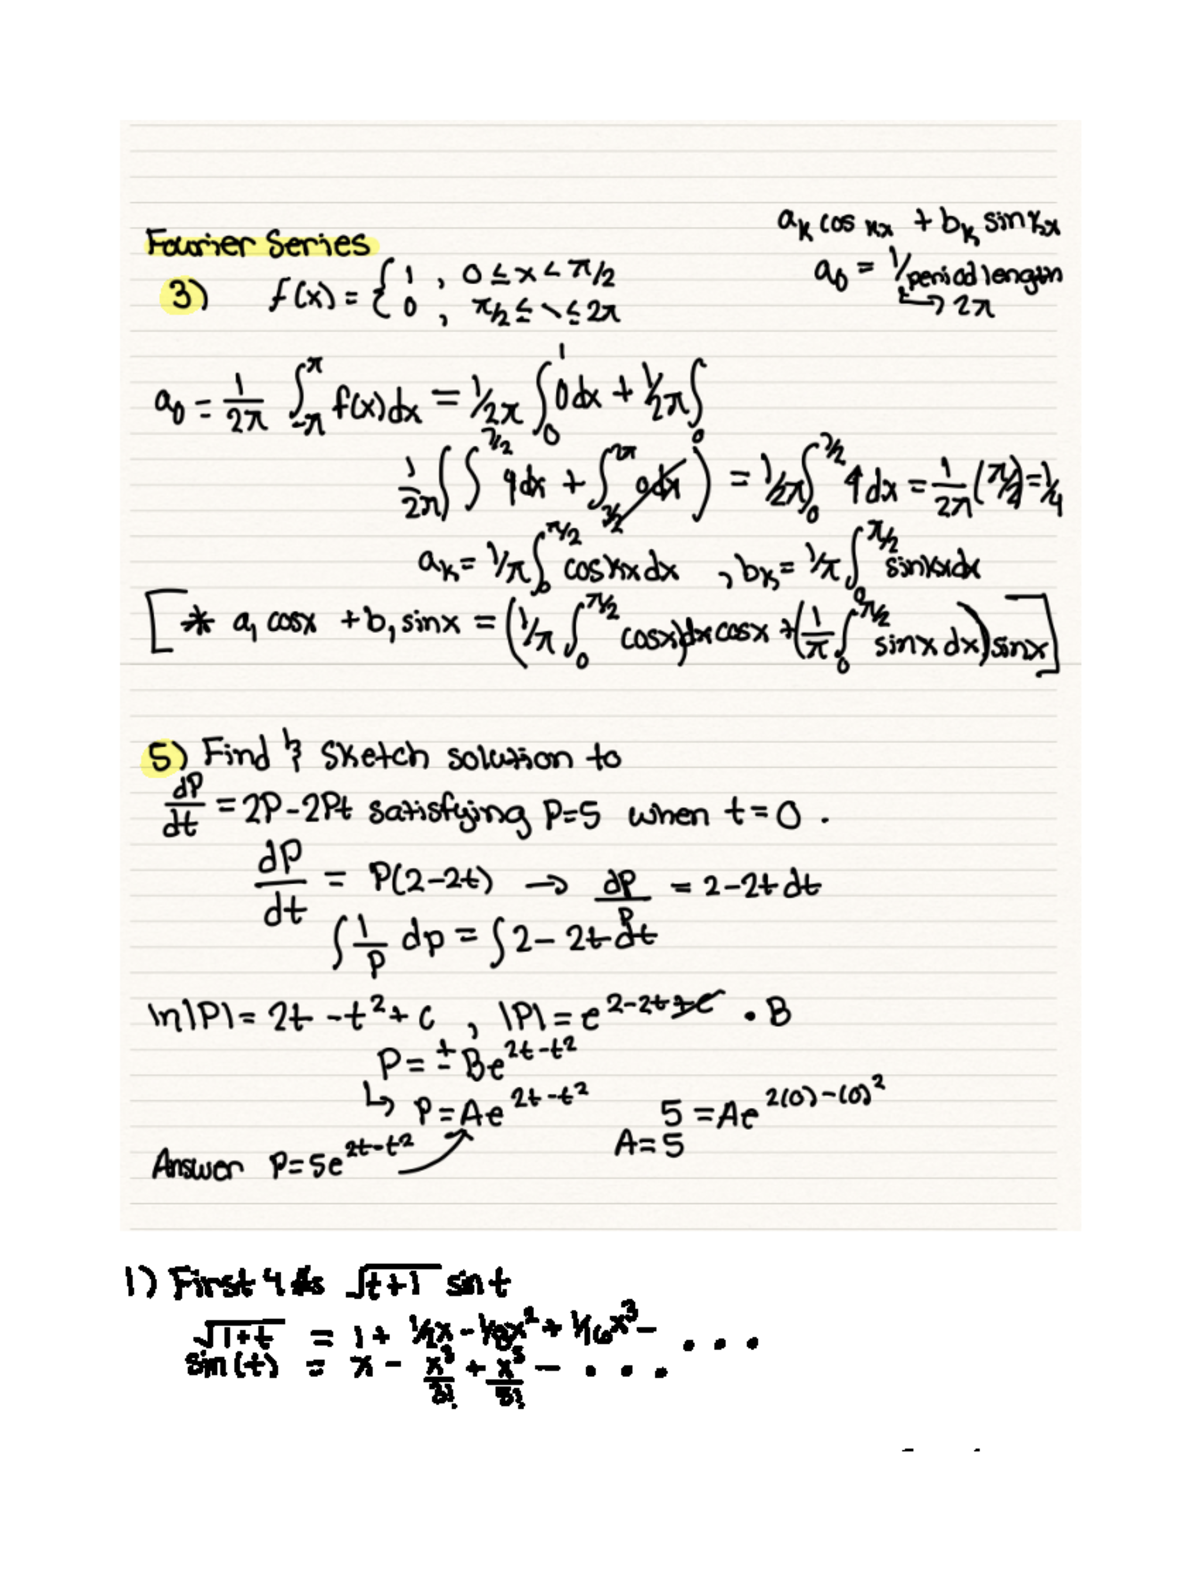 Fourier Series
a_k cos kx + b_k sin kx
a_0 = 1/period length
↳ 2π
3) f(x) = { 1 , 0 ≤ x < π/2
0 , π/2 ≤ \ ≤ 2π
a_0 = 1/2π ∫_{-π}^{π} f(x) dx = 1/2π ∫_0^1 0dx + 1/2π ∫_0
1/2π ( ∫^{π/2} 1dx + ∫_{π/2}^{2π} 0dx ) = 1/2π ∫_0^{π/2} 1 dx = 1/2π (π/2) = 1/4
a_k = 1/π ∫_0^{π/2} cos kx dx , b_k = 1/π ∫_0^{π/2} sin kx dx
[ * a_1 cosx + b_1 sinx = (1/π ∫_0^{π/2} cosx) dx cosx + (1/π ∫_0^{π/2} sinx dx) sinx ]
5) Find & Sketch solution to
dP/dt = 2P - 2Pt satisfying P=5 when t = 0 .
dP/dt = P(2-2t) → dP/P = 2-2t dt
∫ 1/P dp = ∫ 2 - 2t dt
ln|P| = 2t - t² + c , |P| = e^{2-2t+c} · B
P = ± Be^{2t-t²}
↳ P = Ae^{2t-t²} 5 = Ae^{2(0)-(0)²}
A = 5
Answer P = 5e^{2t-t²}
1) First 4 #s √(t+1) sin t
√(1+t) = 1 + 1/2x - 1/8x² + 1/16x³ - ...
sin(t) = x - x³/3! + x⁵/5! - ...